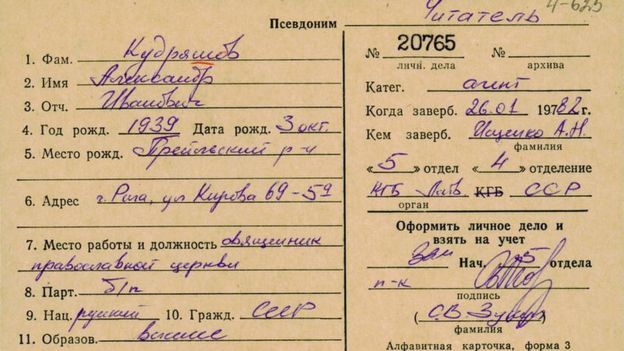 4-625
Псевдоним Читатель
1. Фам. Кудряшов
2. Имя Александр
3. Отч. Иванович
4. Год рожд. 1939 Дата рожд. 3 окт.
5. Место рожд. Прейльский р-н
6. Адрес г. Рига, ул Кирова 69-59
7. Место работы и должность священник
православной церкви
8. Парт. б/п
9. Нац. русский 10. Гражд. СССР
11. Образов. высшее
№ 20765 №
личн. дела архива
Катег. агент
Когда заверб. 26.01 19782 г.
Кем заверб. Ищенко А.Н.
фамилия
«5» отдел «4» отделение
КГБ Латв КГБ ССР
орган
Оформить личное дело и
взять на учет
Зам Нач. 5 отдела
п-к
подпись
(С.В.
фамилия
Алфавитная карточка, форма 3